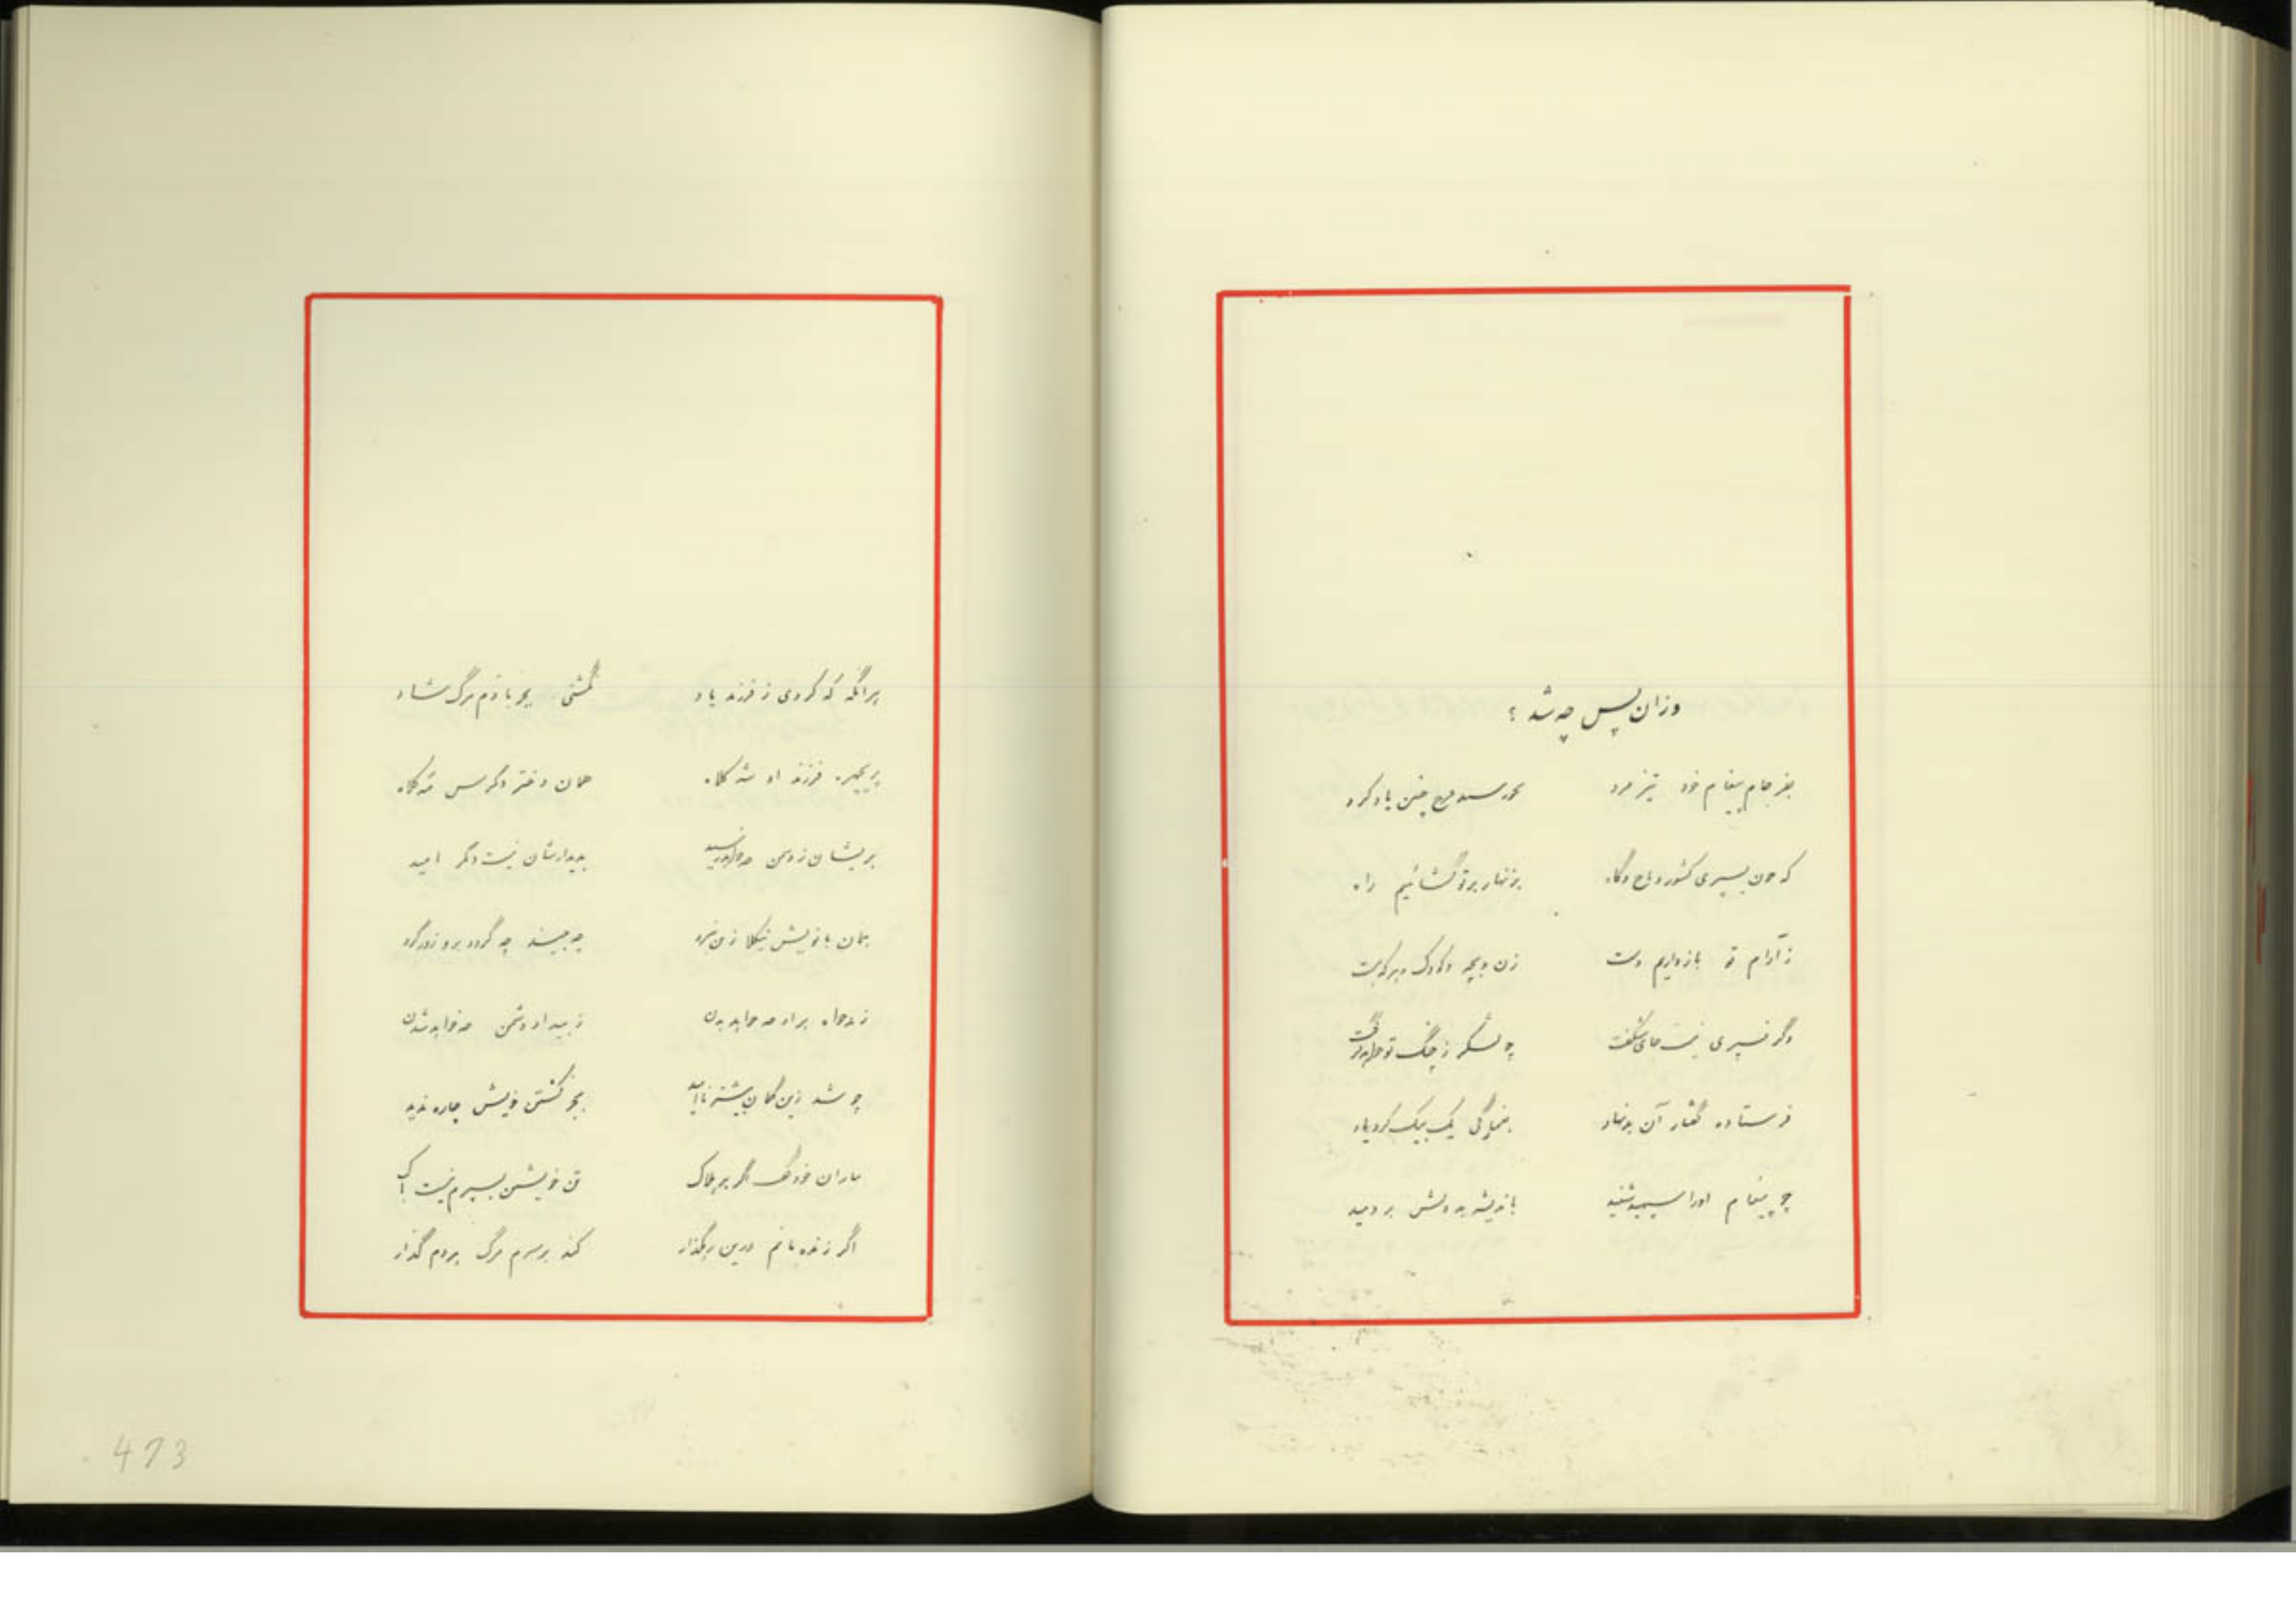 وزان پس چه شد ؟
بفرجام پیغام خود تیز مرد چنین یاد کرد
که چون بسپری کشور و تاج و گاه بزنهار بر تو گشائیم راه
ز آرام تو بازداریم دست زن و بچه و کودک و هر که هست
وگر نسپری نیست جای شگفت چو لشکر ز جنگ تو خواهد گرفت
فرستاده گفتار آن بدنهاد یک بیک کرد یاد
چو پیغام او را سپهبد شنید باندیشه بر دمید
هرانگه که کردی ز فرزند یاد گشتی مرگ شاد
پریچهره فرزند او شه کلاه همان دختر دگرس مه کلاه
بریشان ز دشمن چه خواهد رسید بدیدارشان نیست دگر امید
همان بانویش نیکلا زن نبرد چه بیند چه گردد برو
برادر چه خواهد بدن ز بیداد دشمن چه خواهد شدن
چو شد زین گمان بیشتر ناامید بجز کشتن خویش چاره ندید
اگر بر هلاک تن خویشتن بسپرم نیست باک
اگر زنده مانم درین رهگذار کند بر سرم مرگ مردم گذار
473